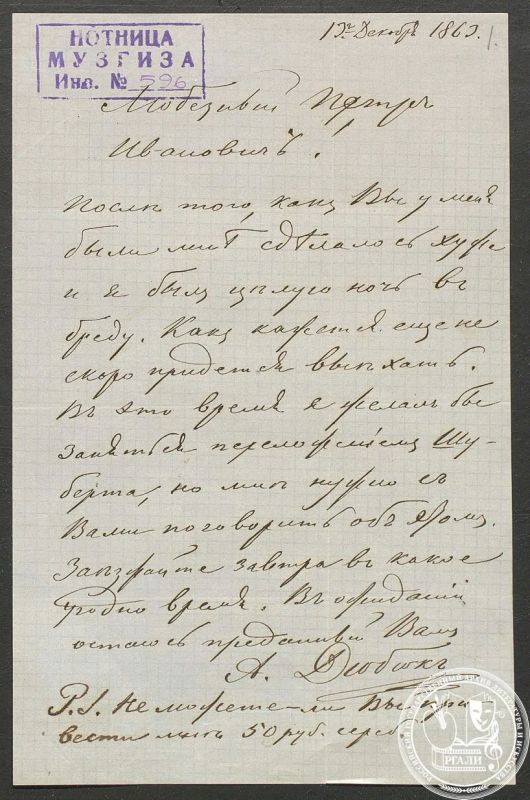 13го Декабря 1863. 1.
НОТНИЦА
МУЗГИЗА
Инв. № 596
Любезный Петръ
Ивановичъ.
Послѣ того, какъ Вы у меня
были мнѣ сдѣлалось хуже
и я былъ цѣлую ночь въ
бреду. Какъ кажется еще не
скоро придется выѣхать.
Въ это время я желалъ бы
заняться переложеніемъ Шу-
берта, но мнѣ нужно съ
Вами поговорить объ этомъ.
Заѣзжайте завтра въ какое
угодно время. Въ ожиданіи
остаюсь преданный Вамъ
А. Дюбюкъ
P.S. Не можете-ли Вы при
вести мнѣ 50 руб. сереб
РГАЛИ